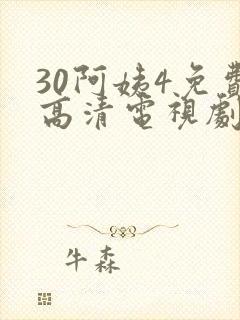 30阿姨4免費
高清電視劇
牛森